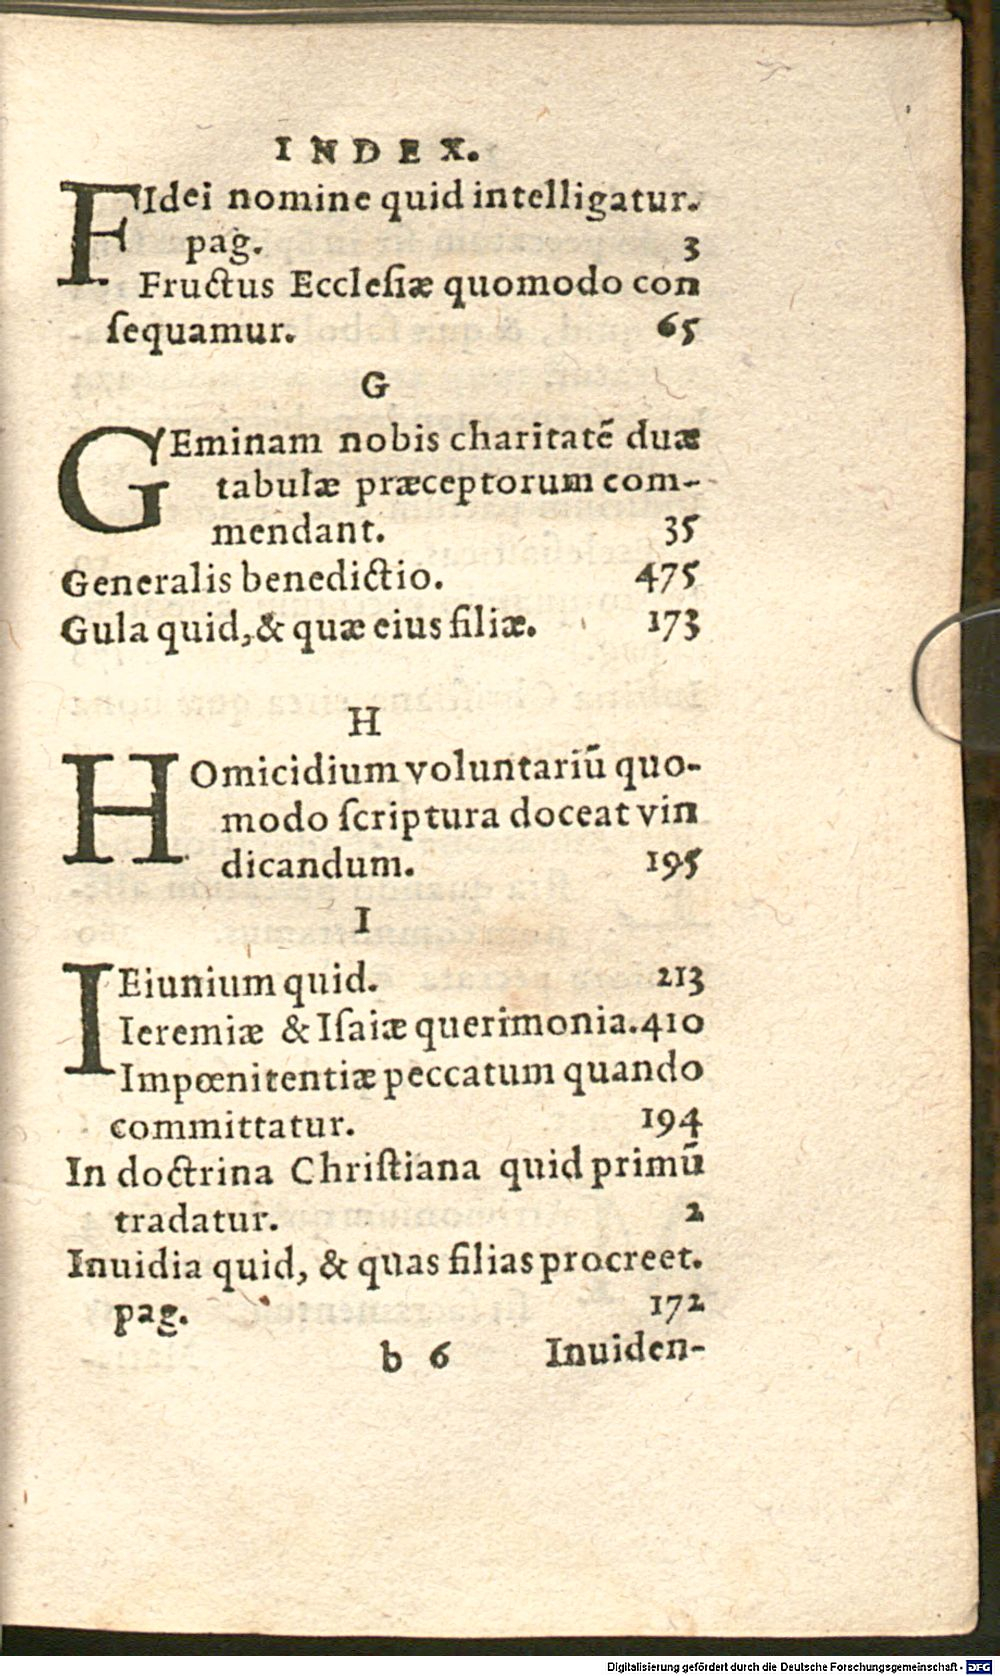 INDEX.
FIdei nomine quid intelligatur.
pag. 3
Fructus Ecclesiæ quomodo con
sequamur. 65
G
GEminam nobis charitatē duæ
tabulæ præceptorum com-
mendant. 35
Generalis benedictio. 475
Gula quid, & quæ eius filiæ. 173
H
HOmicidium voluntariū quo-
modo scriptura doceat vin
dicandum. 195
I
IEiunium quid. 213
Ieremiæ & Isaiæ querimonia. 410
Impœnitentiæ peccatum quando
committatur. 194
In doctrina Christiana quid primū
tradatur. 2
Inuidia quid, & quas filias procreet.
pag. 172
b 6 Inuiden-
Digitalisierung gefördert durch die Deutsche Forschungsgemeinschaft - DFG